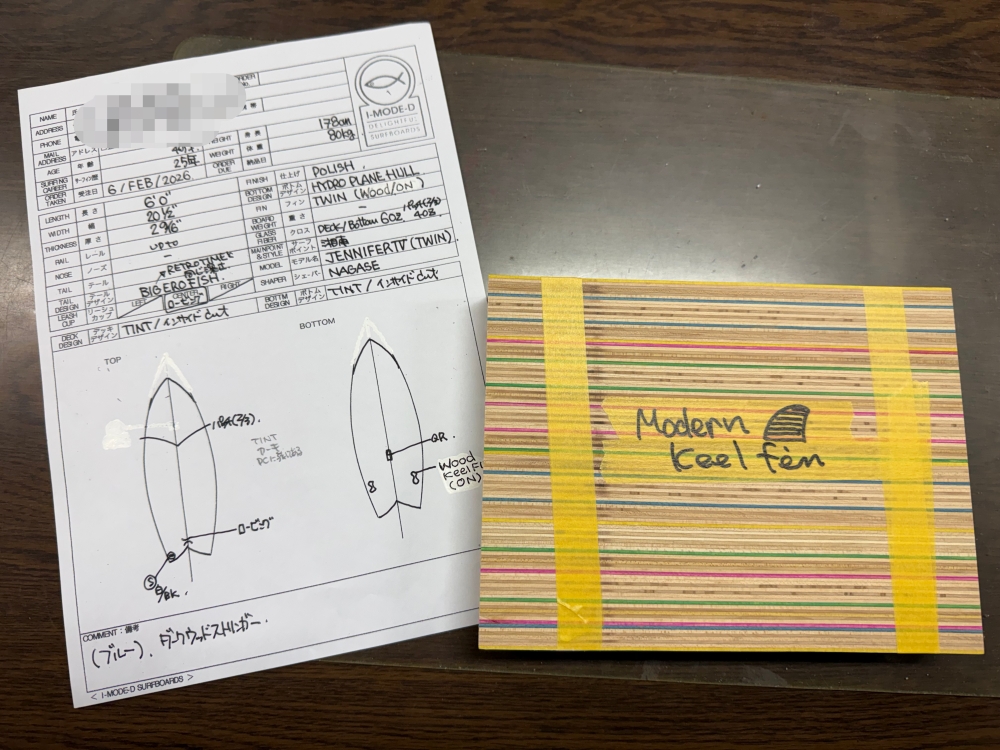 NAME
ADDRESS
PHONE
MAIL ADDRESS アドレス
AGE 年齢
SURFING CAREER サーフィン歴 25年
ORDER TAKEN 受注日 6/FEB/2026
HEIGHT 身長 178cm
WEIGHT 体重 80kg
ORDER DUE 納品日
I-MODE-D
DELIGHTFUL
SURFBOARDS
LENGTH 長さ 6'0"
WIDTH 幅 20 1/2"
THICKNESS 厚さ
RAIL レール up to
NOSE ノーズ –
TAIL テール
BIG ERO FISH.
TAIL DESIGN テールデザイン
LEASH CUP リーシュカップ LEFT CENTER RIGHT
ロービング
DECK DESIGN デッキデザイン TINT/インサイド cut
FINISH 仕上げ POLISH.
BOTTOM DESIGN ボトムデザイン HYDRO PLANE HULL
FIN フィン TWIN (Wood/ON)
BOARD WEIGHT 重さ –
GLASS FIBER クロス DECK/Bottom 6oz 4oz
MAINPOINT & STYLE サーフポイント 湘南
MODEL モデル名 JENNIFER IV (TWIN).
SHAPER シェーパー NAGASE
BOTTM DESIGN ボトムデザイン TINT/インサイド cut
TOP
BOTTOM
TINT
QR.
Wood
Keel
(ON)
8
8
ロービング
S
COMMENT : 備考
(ブルー). ダークウッドストリンガー.
< I-MODE-D SURFBOARDS >
Modern
Keel fin